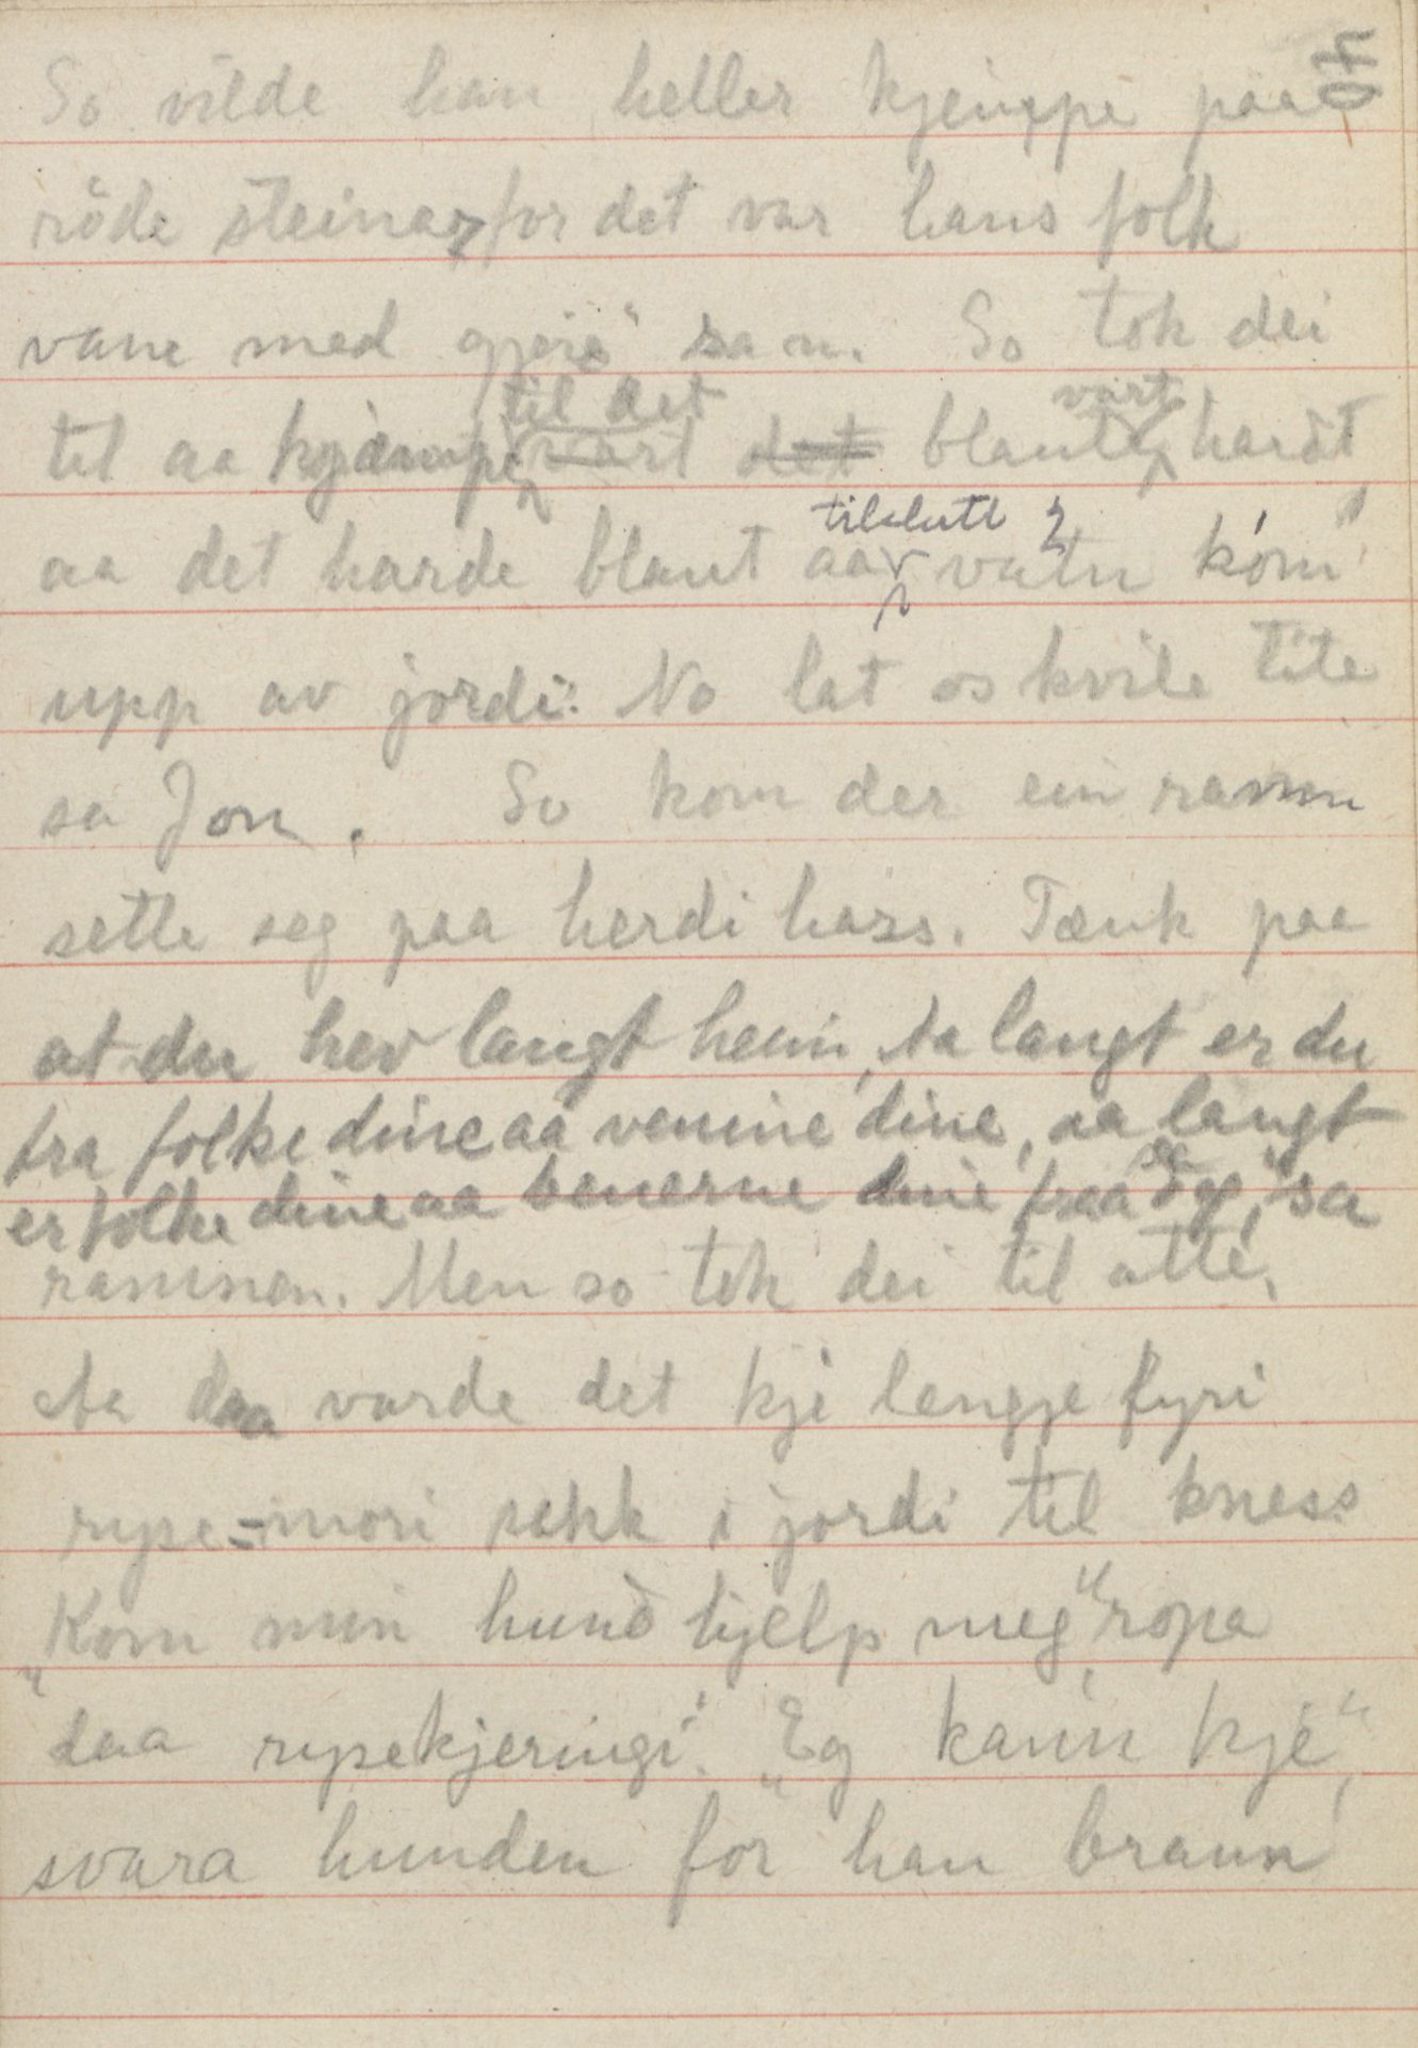 So vilde han heller kjempe paa
röde steinar, for det var hans folk
vane med gjere" sa n. So tok dei
til det vart
til aa kjæmpe vart det blaute hardt,
tilslutt
aa det harde blaut aa vatn kom
upp av jordi: No lat os kvile lite
sa Jon. So kom der ein ramn
sette seg paa herdi hass. Tænk paa
at du hev langt heim, Aa langt er du
fra folke dine aa venine dine, aa langt
er folke dine aa venerne dine fraa deg," sa
ramnen. Men so tok dei til atte,
Aa daa varde det kje lengje fyri
rype-mori sokk i jordi til kness
"Kom min hund hjelp meg" ropa
daa rypekjeringi. "Eg kann kje",
svara hunden for han brann